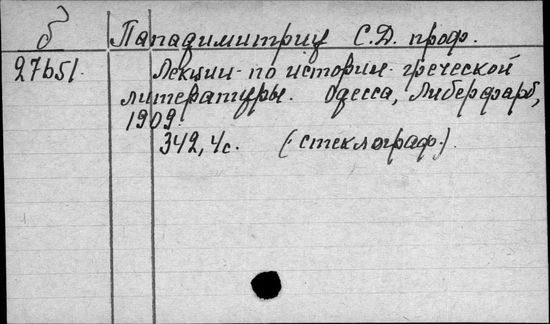 б Пападимитриу С.Д. проф.
27651. Лекции по истории греческой
литературы. Одесса, Либерфарб,
1909.
342, 4с. (стеклограф.)